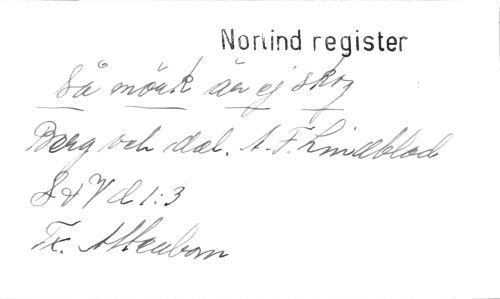 Norlind register
Så mörk är ej skog
Berg och dal. A. F. Lindblad
S & V d 1:3
Tx. Atterbom